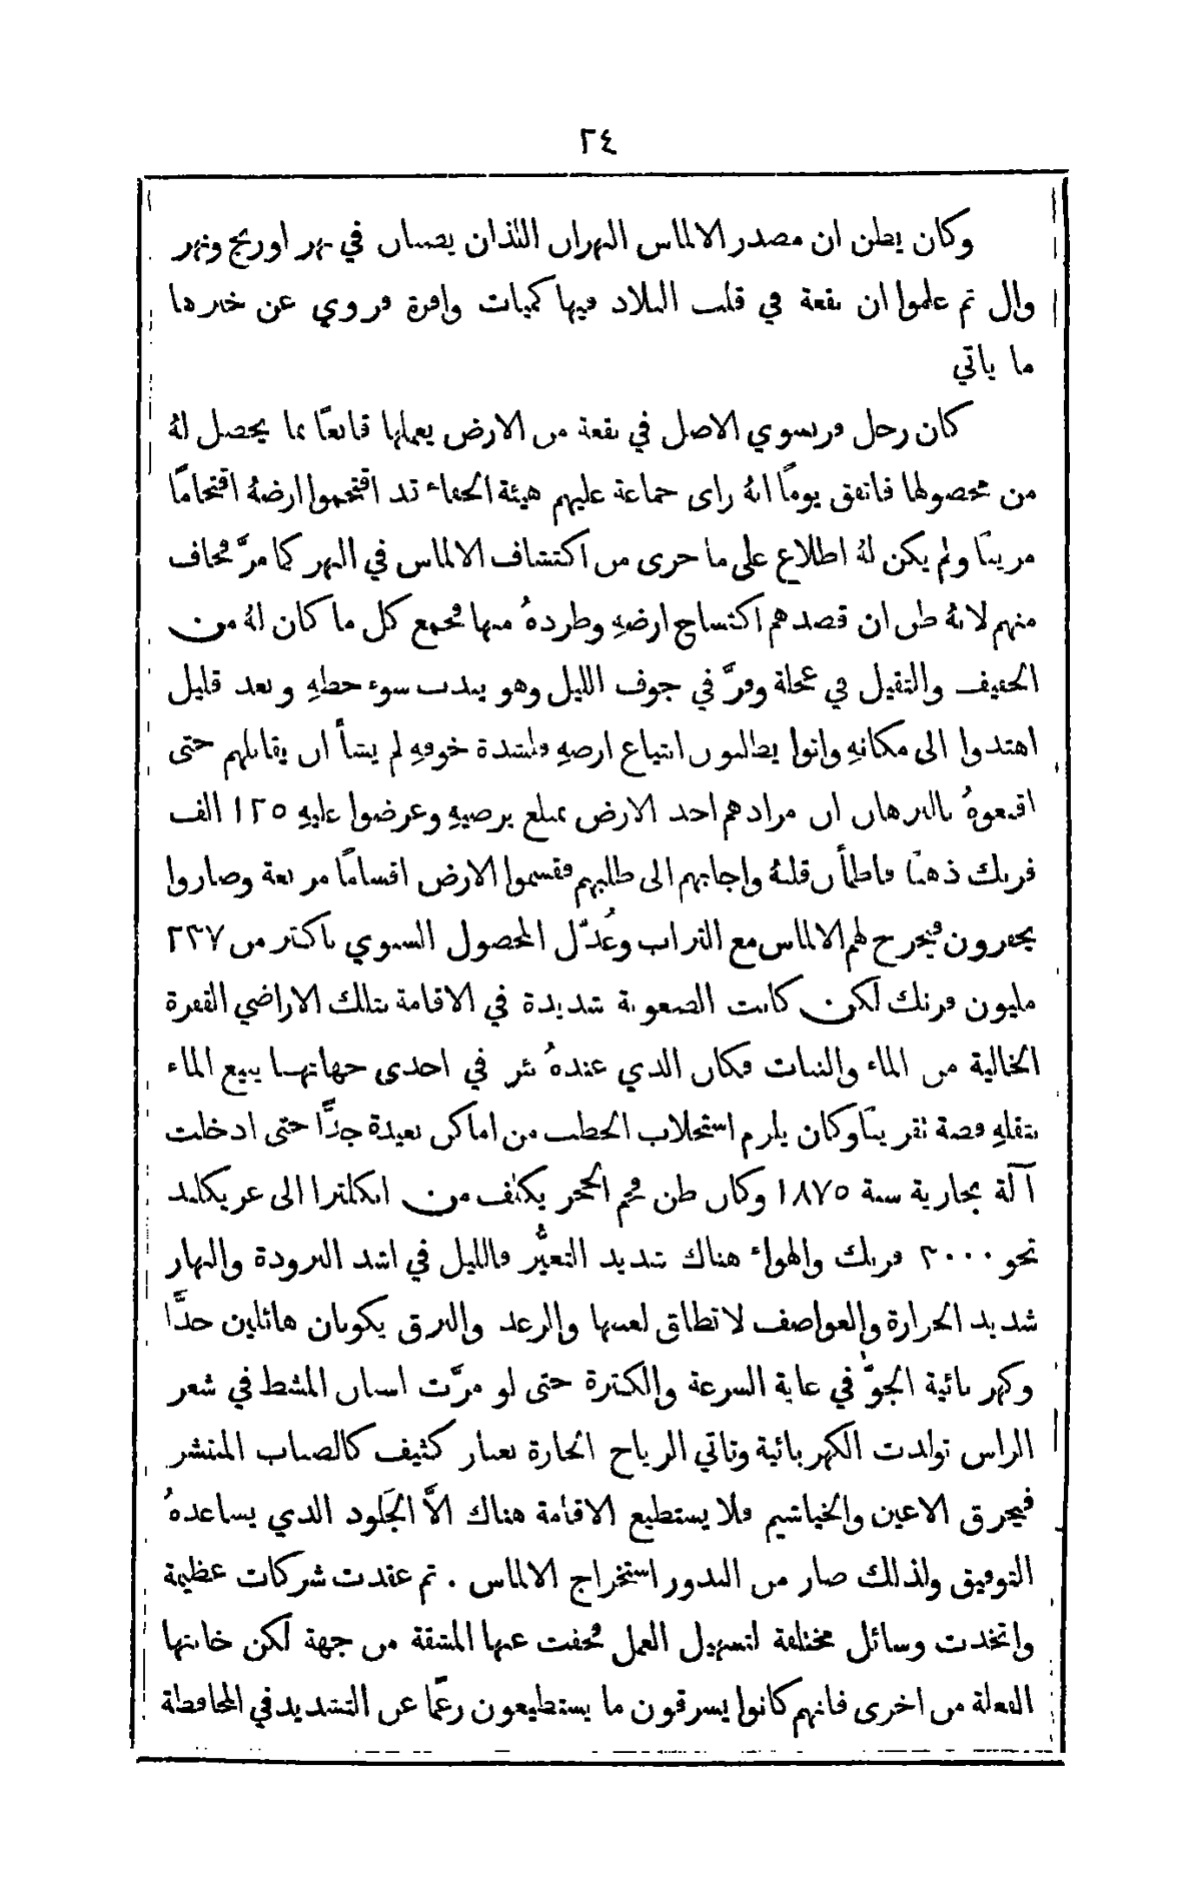 ٢٤
وكان يظن ان مصدر الالماس النهران اللذان يصبان في نهر اورنج ونهر
وال ثم علموا ان بقعة في قلب البلاد فيها كميات وافرة وروي عن خبرها
ما ياتي
كان رجل فرنسوي الاصل في بقعة من الارض يعملها قانعًا بما يحصل لهُ
من محصولها فاتفق يومًا انهُ راى جماعة عليهم هيئة الجفاء قد اقتحموا ارضهُ اقتحامًا
مريبًا ولم يكن لهُ اطلاع على ما جرى من اكتشاف الالماس في النهر كما مرَّ فخاف
منهم لانهُ ظن ان قصدهم اكتساح ارضهِ وطردهُ منها فجمع كل ما كان لهُ من
الخفيف والثقيل في عجلة وفرَّ في جوف الليل وهو يندب سوء حظهِ وبعد قليل
اهتدوا الى مكانهِ واتوا يطلبون ابتياع ارضهِ فلشدة خوفهِ لم يشأ ان يقابلهم حتى
اقنعوهُ بالبرهان ان مرادهم اخذ الارض بمبلغ يرضيهِ وعرضوا عليهِ ١٢٥ الف
فرنك ذهبًا فاطمأن قلبهُ واجابهم الى طلبهم فقسموا الارض اقسامًا مربعة وصاروا
يحفرون فيخرج لهم الالماس مع التراب وعُدّل المحصول السنوي باكثر من ٢٣٧
مليون فرنك لكن كانت الصعوبة شديدة في الاقامة بتلك الاراضي القفرة
الخالية من الماء والنبات فكان الذي عندهُ بئر في احدى جهاتها يبيع الماء
بثقلهِ فضة تقريبًا وكان يلزم استجلاب الحطب من اماكن بعيدة جدًّا حتى ادخلت
آلة بخارية سنة ١٨٧٥ وكان طن فحم الحجر يكلف من انكلترا الى غريكلند
نحو ٣٠٠٠ فرنك والهواء هناك شديد التغيُّر فالليل في اشد البرودة والنهار
شديد الحرارة والعواصف لا تطاق لعنفها والرعد والبرق يكونان هائلين جدًّا
وكهربائية الجوّ في غاية السرعة والكثرة حتى لو مرَّت اسنان المشط في شعر
الراس تولدت الكهربائية وتاتي الرياح الحارة بغبار كثيف كالضباب المنتشر
فيحرق الاعين والخياشيم فلا يستطيع الاقامة هناك الَّا الجَلود الذي يساعدهُ
التوفيق ولذلك صار من الندور استخراج الالماس . ثم عقدت شركات عظيمة
واتخذت وسائل مختلفة لتسهيل العمل فخفت عنها المشقة من جهة لكن خانتها
الفعلة من اخرى فانهم كانوا يسرقون ما يستطيعون رغمًا عن التشديد في المحافظة